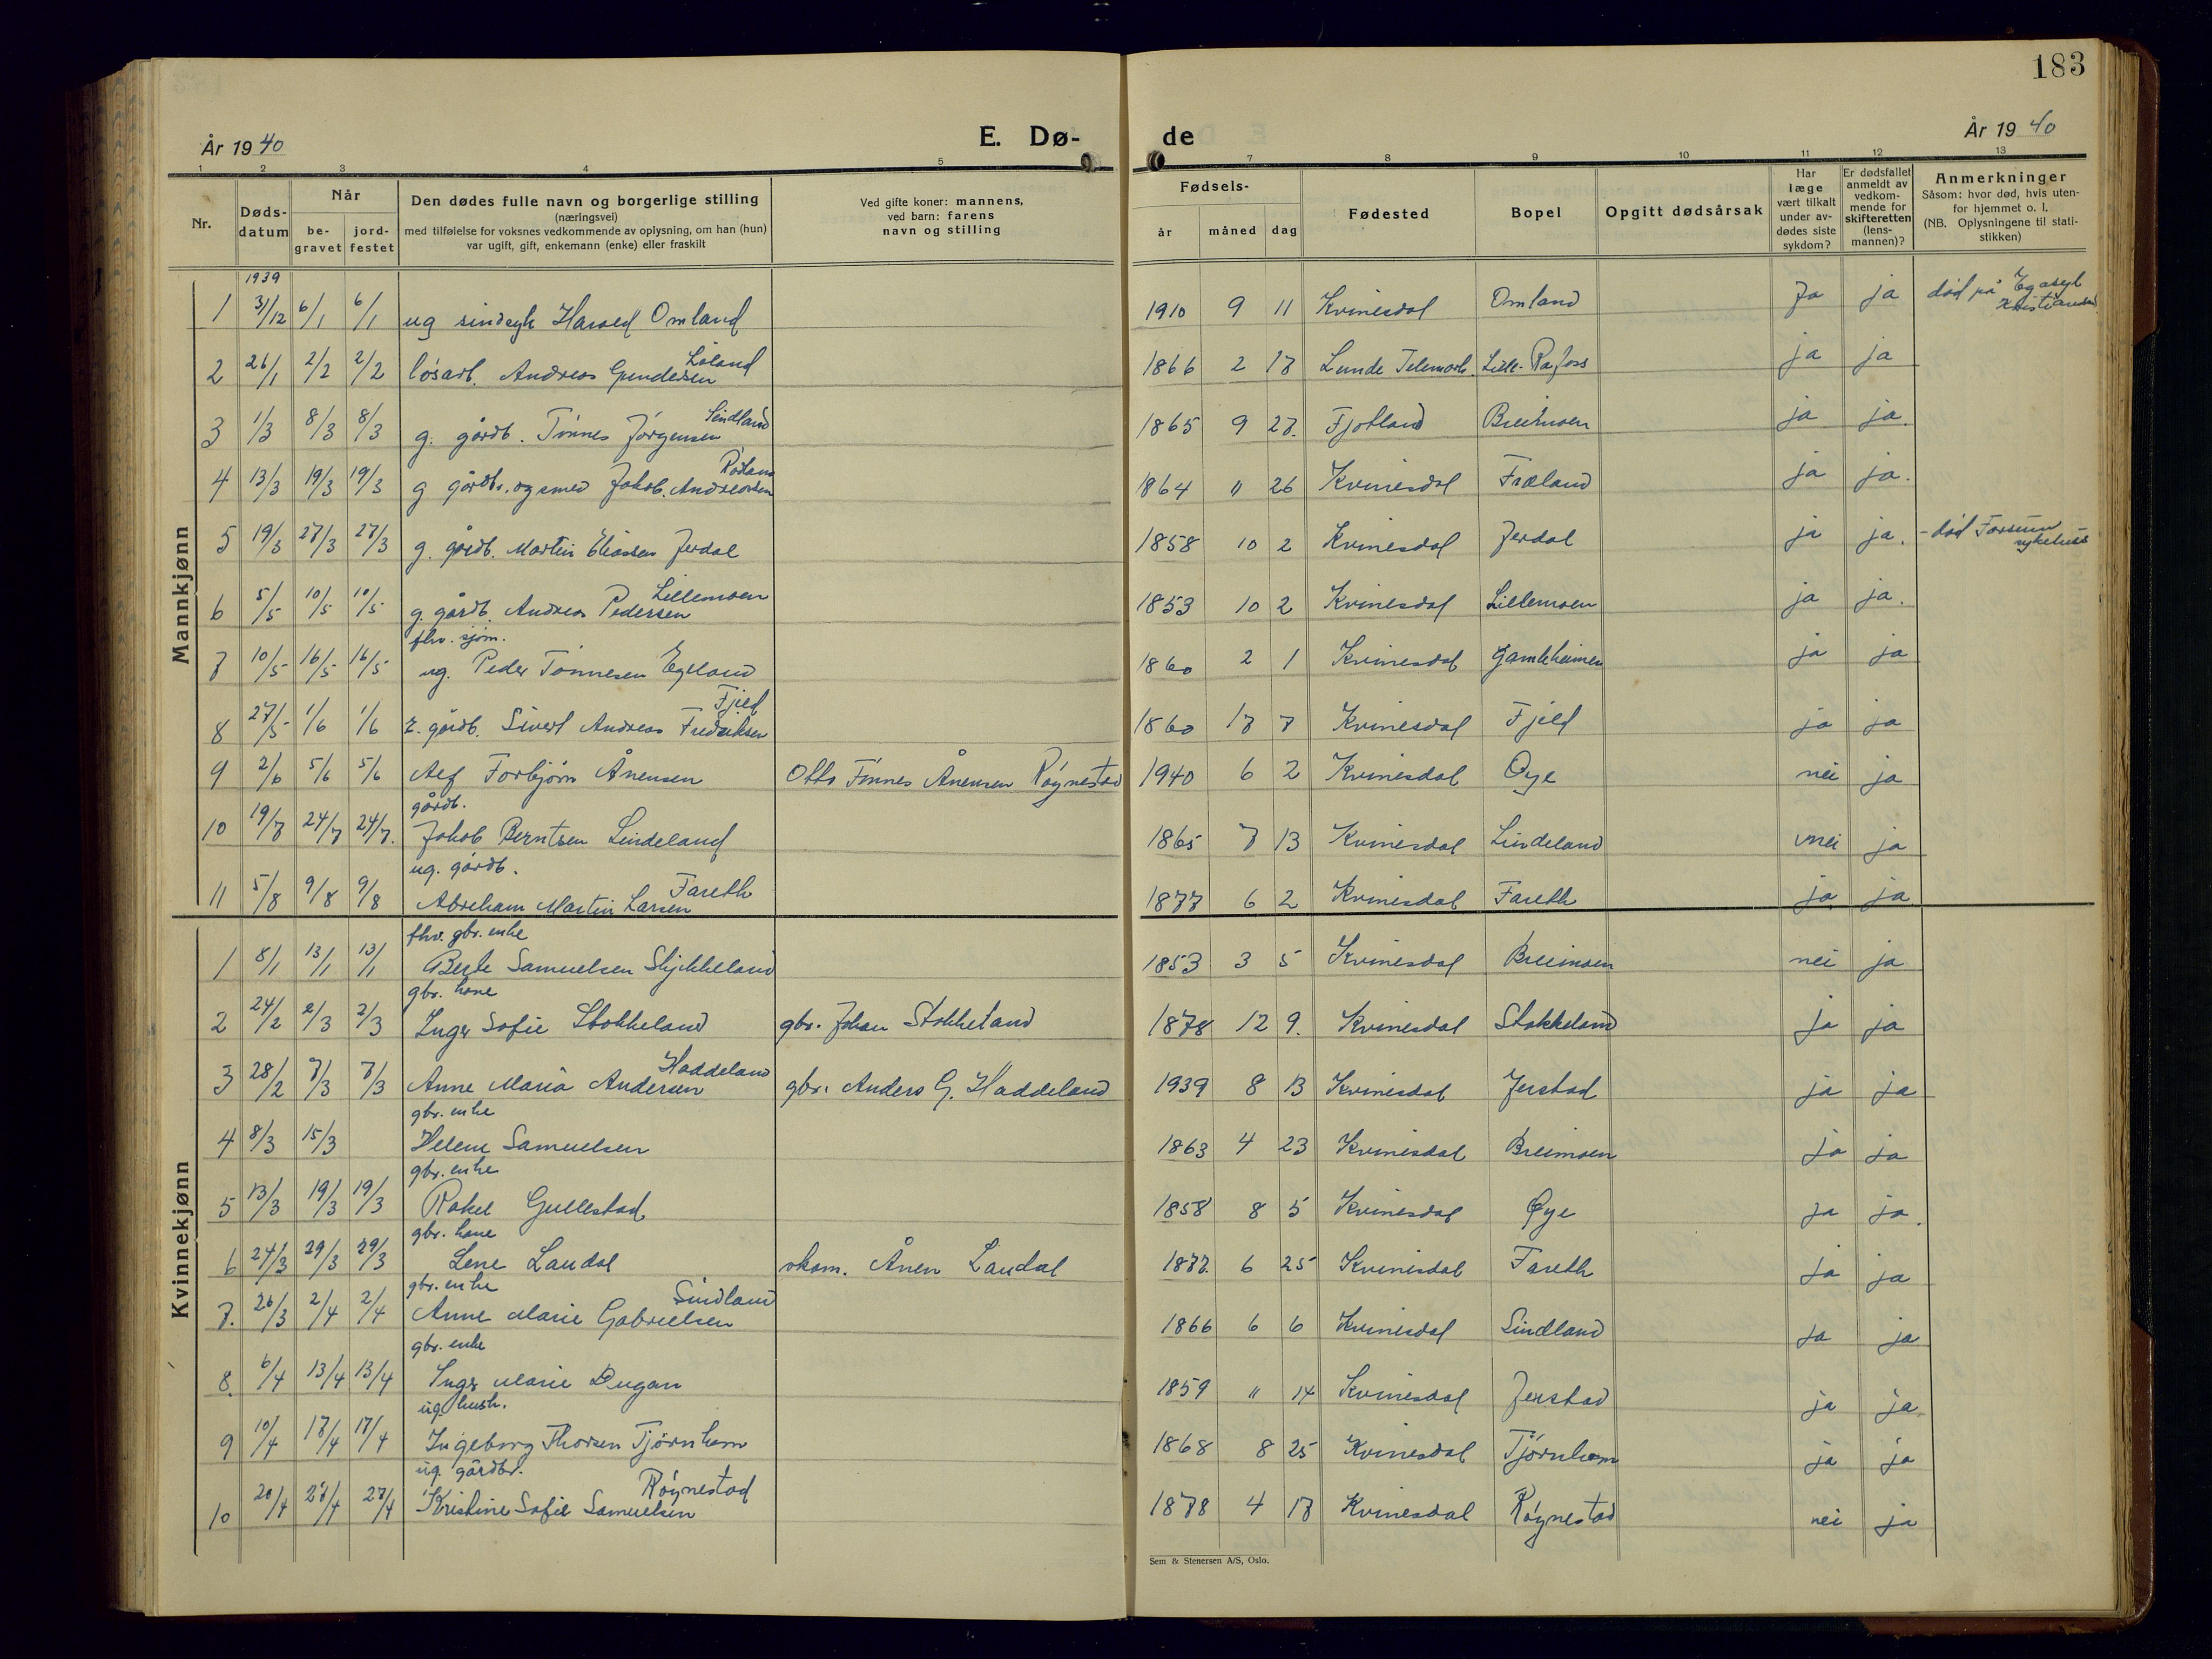 183
År 1940
E. Dø-
de
År 1940
1 2 3 4 5 7 8 9 10 11 12 13
Nr.
Døds-
datum
Når
be-
gravet
jord-
festet
Den dødes fulle navn og borgerlige stilling
(næringsvei)
med tilføielse for voksnes vedkommende av oplysning, om han (hun)
var ugift, gift, enkemann (enke) eller fraskilt
Ved gifte koner: mannens,
ved barn: farens
navn og stilling
Fødsels-
år måned dag
Fødested
Bopel
Opgitt dødsårsak
Har
læge
vært tilkalt
under av-
dødes siste
sykdom?
Er dødsfallet
anmeldt av
vedkom-
mende for
skifteretten
(lens-
mannen)?
Anmerkninger
Såsom: hvor død, hvis uten-
for hjemmet o. l.
(NB. Oplysningene til stati-
stikken)
Mannkjønn
1939
1 31/12 6/1 6/1 ug sindsyk Harald Omland 1910 9 11 Kvinesdal Omland Ja ja død på Eg asyl
Kristiansand
Löland
2 26/1 2/2 2/2 løsarb. Andreas Gundersen 1866 2 17 Lunde Telemark. Lille-Rafoss ja ja
Sindland
3 1/3 8/3 8/3 g. gårdb. Tønnes Jörgensen 1865 9 27. Fjotland Breimoen ja ja.
4 13/3 19/3 19/3 g gårdbr. og smed Jakob. Andreassen 1864 11 26 Kvinesdal Fræland ja ja.
5 19/3 27/3 27/3 g. gårdb. Martin Eliassen Jerdal 1858 10 2 Kvinesdal Jerdal ja ja. - død Farsund
sykehus
Lillemoen
6 5/5 10/5 10/5 g. gårdb. Andreas Pedersen 1853 10 2 Kvinesdal Lillemoen ja ja.
fhv. sjøm.
7 10/5 16/5 16/5 ug. Peder Tønnesen Egeland 1860 2 1 Kvinesdal Gamleheimen ja ja
Fjell
8 27/5 1/6 1/6 e. gårdb. Sivert Andreas Fredriksen 1860 17 7 Kvinesdal Fjell ja ja
9 2/6 5/6 5/6 Alf Torbjørn Ånensen Otto Tønnes Ånensen Røynestad 1940 6 2 Kvinesdal Øye nei ja
gårdb.
10 19/7 24/7 24/7. Jakob Berntsen Lindeland 1865 7 13 Kvinesdal Lindeland nei ja
ug. gårdb.
Fareth
11 5/8 9/8 9/8 Abreham Martin Larsen 1877 6 2 Kvinesdal Fareth ja ja
Kvinnekjønn
fhv. gbr. enke
1 8/1 13/1 13/1 Berte Samuelsen Slijkkeland 1853 3 5 Kvinesdal Breimoen nei ja
gbr. kone
2 24/2 2/3 2/3 Inger Sofie Stokkeland gbr. Johan Stokkeland 1878 12 9. Kvinesdal Stokkeland ja ja
Haddeland
3 28/2 7/3 7/3 Anne Maria Andersen gbr. Anders G. Haddeland 1939 8 13 Kvinesdal Jerstad ja ja
gbr. enke
4 8/3 15/3 Helene Samuelsen 1863 4 23 Kvinesdal Breimoen ja ja
gbr. enke
5 13/3 19/3 19/3 Rakel Gullestad 1858 8 5 Kvinesdal Øye ja ja.
gbr. kone
6 24/3 29/3 29/3 Lene Laudal vkom. Ånen Laudal 1877. 6 25 Kvinesdal Fareth ja ja
gbr. enke
Sindland
7. 26/3 2/4 2/4 Anne Marie Gabrielsen 1866 6 6 Kvinesdal Sindland ja ja
gbr. enke
8. 6/4 13/4 13/4 Inger Marie Dugan 1859 11 14 Kvinesdal Jerstad ja ja
ug. hush.
9 10/4 17/4 17/4 Ingeborg Thorsen Tjørnhom 1868 8 25 Kvinesdal Tjørnhom ja ja
ug. gårdbr.
Røynestad
10 20/4 27/4 27/4 Kristine Sofie Samuelsen 1878 4 17 Kvinesdal Røynestad nei ja
Sem & Stenersen A/S, Oslo.